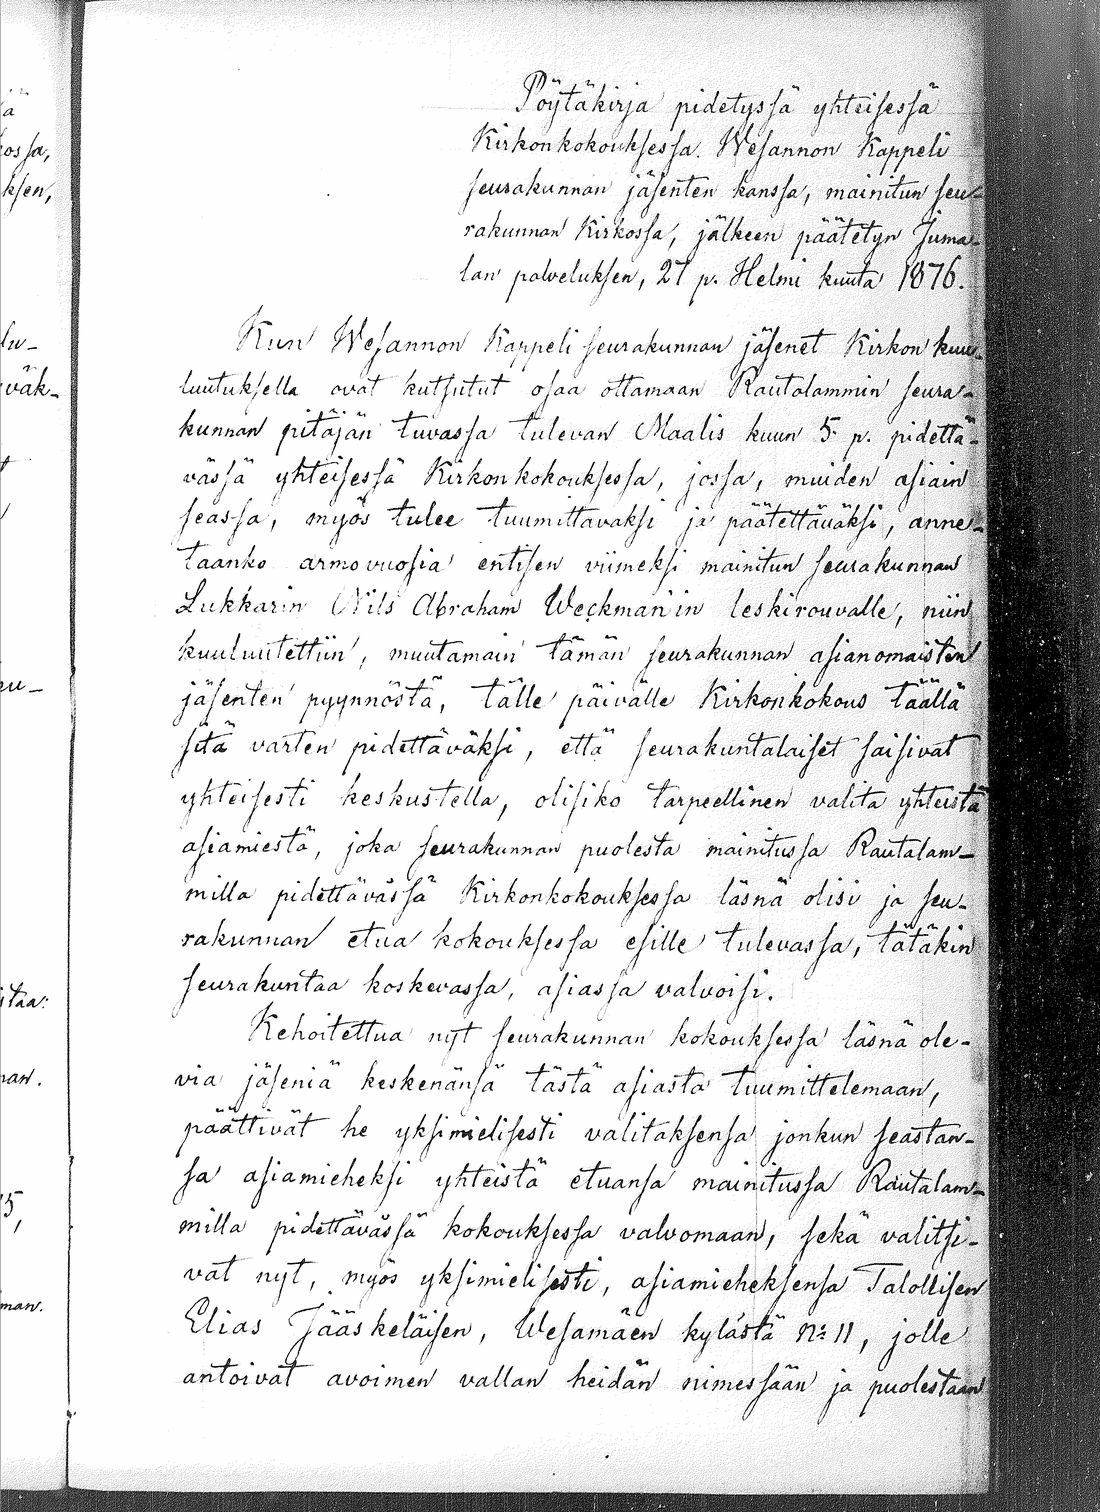 Pöytäkirja pidetyssä yhteisessä
Kirkonkokouksessa Wesannon Kappeli
seurakunnan jäsenten kanssa, mainitun seu-
rakunnan Kirkossa, jälkeen päätetyn Juma-
lan palveluksen, 27 p. Helmi kuuta 1876.
Kun Wesannon Kappeli seurakunnan jäsenet Kirkon kuu-
luutuksella ovat kutsutut osaa ottamaan Rautalammin seura-
kunnan pitäjän tuvassa tulevan Maalis kuun 5 p. pidettä-
vässä yhteisessä Kirkonkokouksessa, jossa, muiden asiain
seassa, myös tulee tuumittavaksi ja päätettäväksi, anne-
taanko armovuosia entisen viimeksi mainitun seurakunnan
Lukkarin Nils Abraham Weckman'in leskirouvalle, niin
kuuluutettiin, muutamain tämän seurakunnan asianomaisten
jäsenten pyynnöstä, tälle päivälle Kirkonkokous täällä
sitä varten pidettäväksi, että seurakuntalaiset saisivat
yhteisesti keskustella, olisiko tarpeellinen valita yhteistä
asiamiestä, joka seurakunnan puolesta mainitussa Rautalam-
milla pidettävässä Kirkonkokouksessa läsnä olisi ja seu-
rakunnan etua kokouksessa esille tulevassa, tätäkin
seurakuntaa koskevassa, asiassa valvoisi.
Kehoitettua nyt seurakunnan kokouksessa läsnä ole-
via jäseniä keskenänsä tästä asiasta tuumittelemaan,
päättivät he yksimielisesti valitaksensa jonkun seastan-
sa asiamieheksi yhteistä etuansa mainitussa Rautalam-
milla pidettävässä kokouksessa valvomaan, sekä valitsi-
vat nyt, myös yksimielisesti, asiamieheksensa Talollisen
Elias Jääskeläisen, Wesamäen kylästä No 11, jolle
antoivat avoimen vallan heidän nimessään ja puolestaan